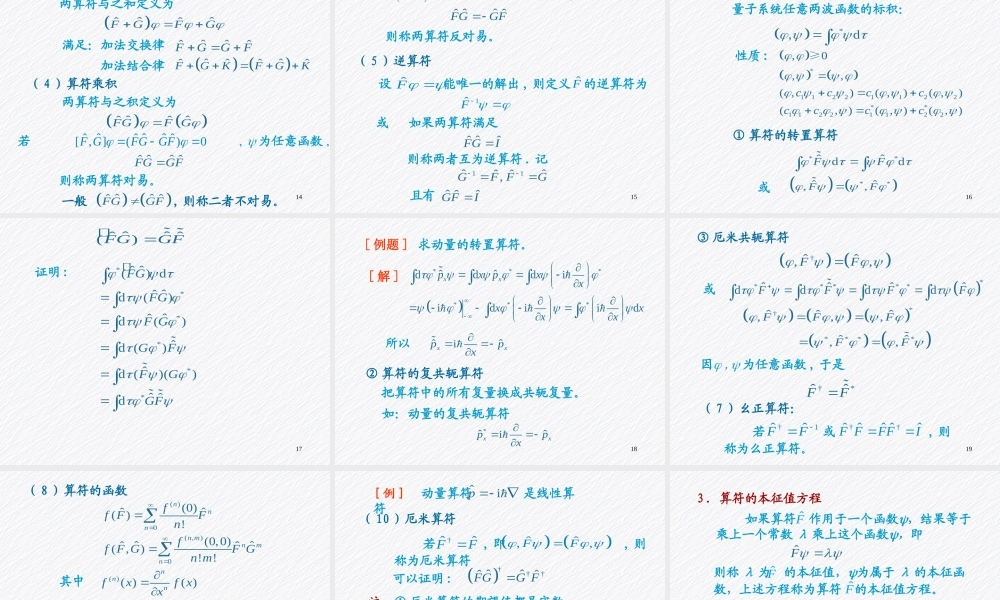 两算符与之和定义为
(F̂+Ĝ)φ=F̂φ+Ĝφ
满足：加法交换律 F̂+Ĝ=Ĝ+F̂
加法结合律 F̂+(Ĝ+K̂)=(F̂+Ĝ)+K̂
（4）算符乘积
两算符与之积定义为
(F̂Ĝ)φ=F̂(Ĝφ)
若 [F̂,Ĝ]=(F̂Ĝ-ĜF̂)=0 ，ψ为任意函数，
F̂Ĝ=ĜF̂
则称两算符对易。
一般 (F̂Ĝ)≠(ĜF̂)，则称二者不对易。
14
F̂Ĝ=-ĜF̂
则称两算符反对易。
（5）逆算符
设 F̂φ=ψ能唯一的解出，则定义F̂的逆算符为
F̂⁻¹ψ=φ
或 如果两算符满足
F̂Ĝ=Î
则称两者互为逆算符．记
Ĝ=F̂⁻¹,F̂=Ĝ⁻¹
且有 ĜF̂=Î
15
量子系统任意两波函数的标积：
(φ,ψ)=∫φ*ψdτ
性质： (φ,φ)≥0
(φ,ψ)*=(ψ,φ)
(φ,c₁ψ₁+c₂ψ₂)=c₁(φ,ψ₁)+c₂(φ,ψ₂)
(c₁φ₁+c₂φ₂,ψ)=c₁*(φ₁,ψ)+c₂*(φ₂,ψ)
① 算符的转置算符
∫φ*F̃ψdτ=∫ψF̂φ*dτ
或 (φ,F̃ψ)=(ψ*,F̂φ*)
16
(F̂Ĝ)=G̃F̃
证明：
∫φ*(F̂Ĝ)ψdτ
=∫dτψ(F̂Ĝ)φ*
=∫dτψF̂(Ĝφ*)
=∫dτ(Ĝφ*)F̃ψ
=∫dτ(F̃ψ)(Ĝφ*)
=∫dτφ*G̃F̃ψ
17
[例题] 求动量的转置算符．
[解] ∫dτφ*p̃ₓψ=∫dxψp̂ₓφ*=∫dxψ(-iℏ∂/∂x)φ*
=ψ(-iℏφ*)|∞-∞-∫dxφ*(-iℏ∂/∂x)ψ=∫φ*(iℏ∂/∂x)ψdx
所以 p̃ₓ=iℏ∂/∂x=-p̂ₓ
② 算符的复共轭算符
把算符中的所有复量换成共轭复量。
如：动量的复共轭算符
p̂ₓ*=iℏ∂/∂x=-p̂ₓ
18
③ 厄米共轭算符
(φ,F̂†ψ)=(F̂φ,ψ)
或 ∫dτφ*F̂†ψ=∫dτφ*F̃*ψ=∫dτψF̂*φ*=∫dτψ(F̂φ)*
(φ,F̂†ψ)=(F̂φ,ψ)=(ψ,F̂φ)*
=(ψ*,F̂*φ*)=(φ,F̃*ψ)
因φ,ψ为任意函数，于是
F̂†=F̃*
（7）幺正算符：
若F̂†=F̂⁻¹ 或F̂†F̂=F̂F̂†=Î，则
称为么正算符。
19
（8）算符的函数
f(F̂)=∑ₙ₌₀^∞ f⁽ⁿ⁾(0)/n! F̂ⁿ
f(F̂,Ĝ)=∑ₙ₌₀^∞ f⁽ⁿ,ᵐ⁾(0,0)/n!m! F̂ⁿĜᵐ
其中 f⁽ⁿ⁾(x)=∂ⁿ/∂xⁿ f(x)
[例] 动量算符p̂=-iℏ∇ 是线性算
符
（10）厄米算符
若F̂†=F̂，即(φ,F̂ψ)=(F̂φ,ψ)，则
称为厄米算符
可以证明：(F̂Ĝ)†=Ĝ†F̂†
3．算符的本征值方程
如果算符F̂ 作用于一个函数ψ，结果等于
乘上一个常数 λ 乘上这个函数ψ，即
F̂ψ=λψ
则称 λ 为F̂ 的本征值，ψ为属于 λ 的本征函
数，上述方程称为算符 F̂的本征值方程。